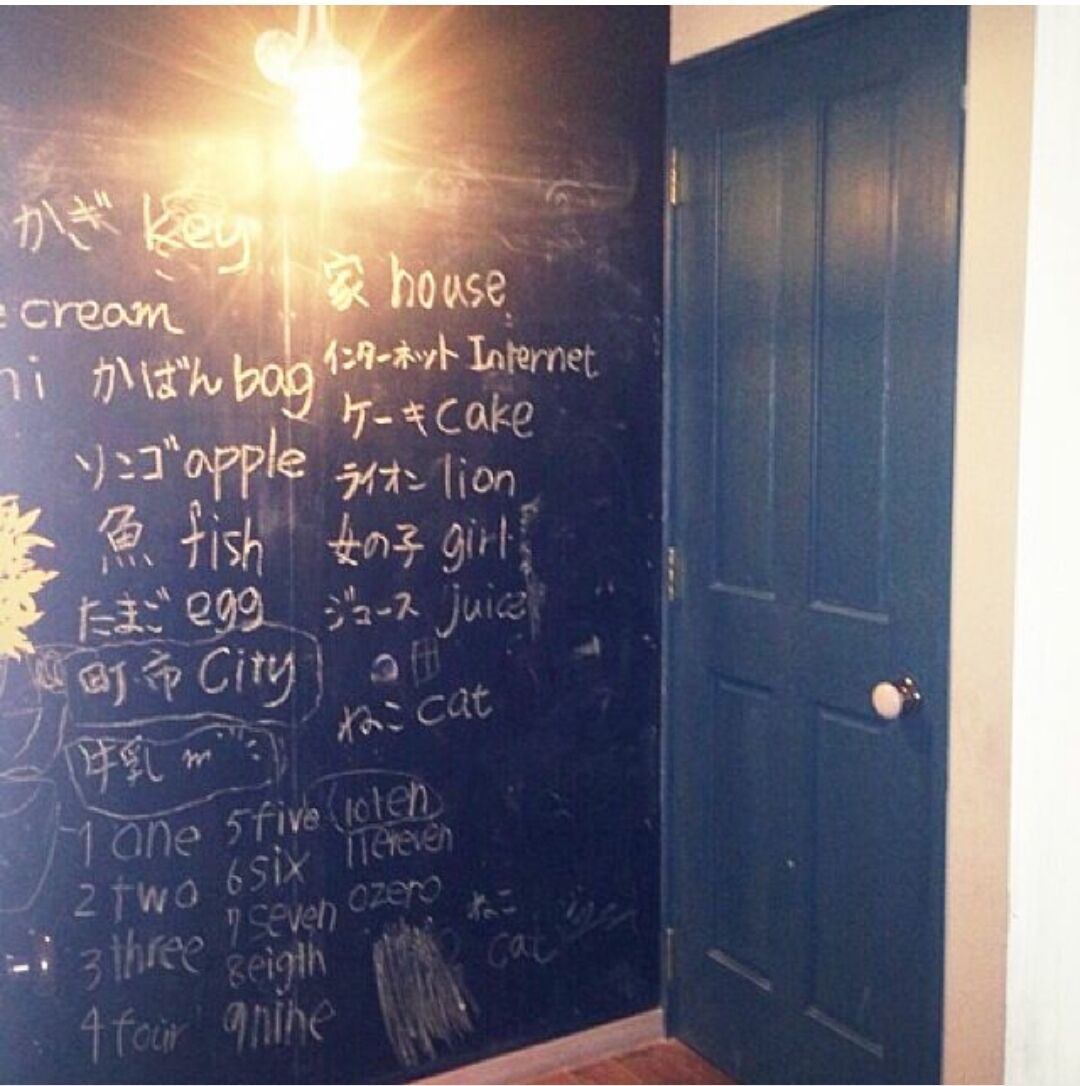 かぎ key
cream
かばん bag
リンゴ apple
魚 fish
たまご egg
町 市 City
牛乳
家 house
インターネット Internet
ケーキ cake
ライオン lion
女の子 girl
ジュース juice
ねこ cat
1 one
2 two
3 three
4 four
5 five
6 six
7 seven
8 eigth
9 nine
10 ten
11 ereven
0 zero
ねこ
cat